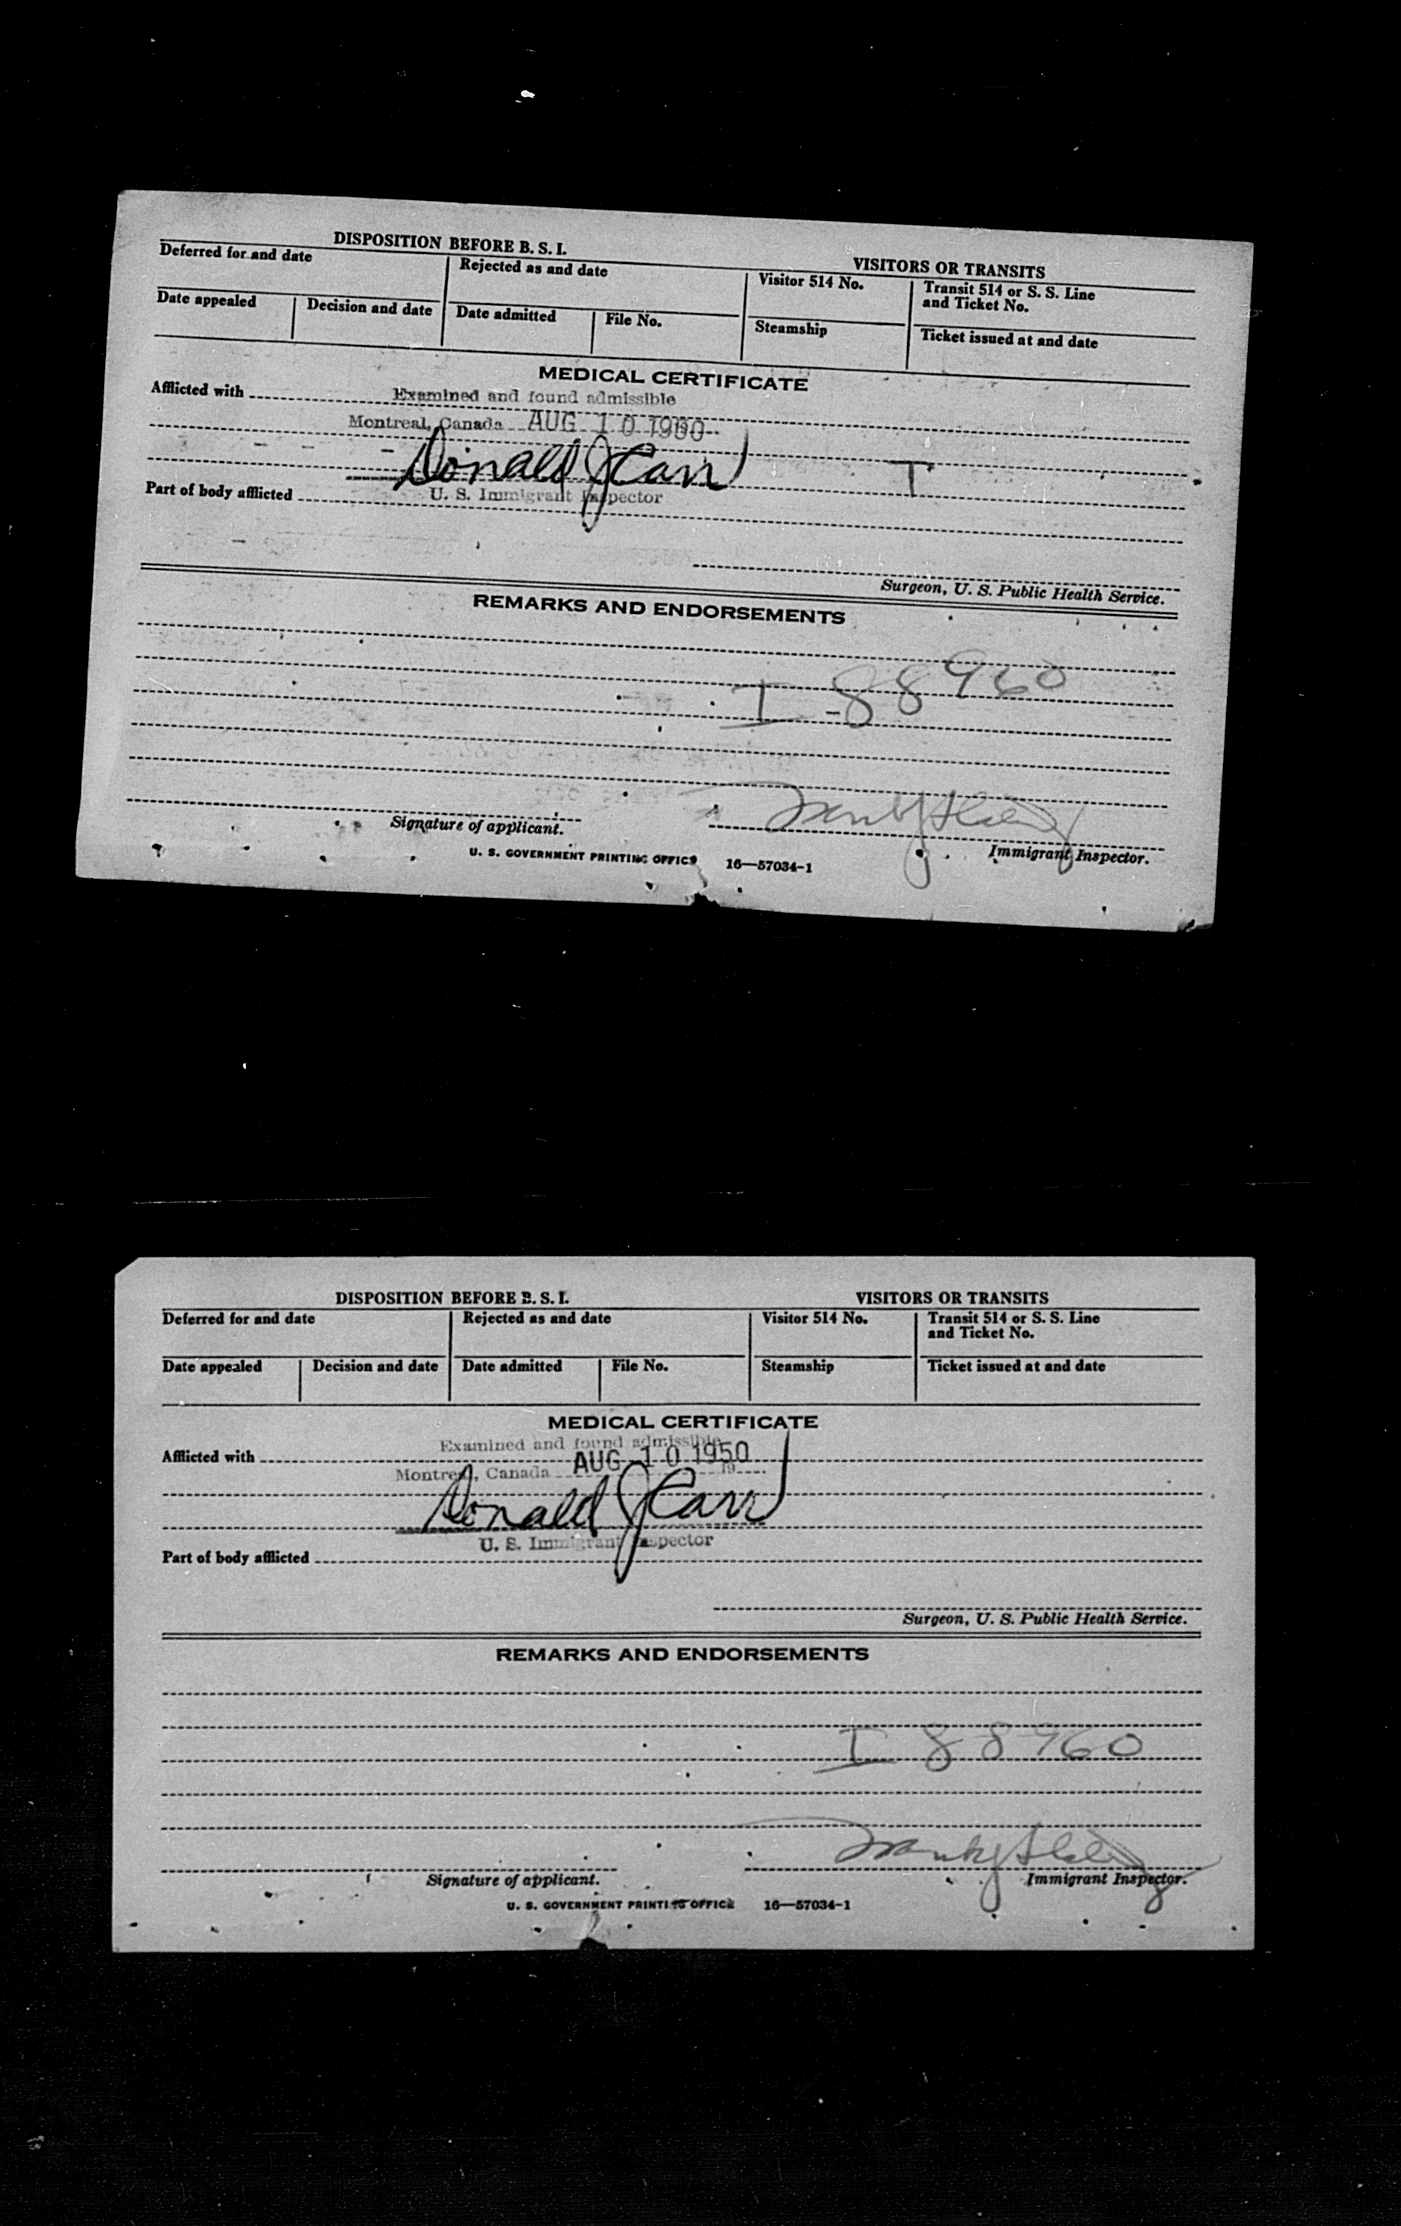 DISPOSITION BEFORE B. S. I.
VISITORS OR TRANSITS
Deferred for and date
Rejected as and date
Visitor 514 No.
Transit 514 or S. S. Line
and Ticket No.
Date appealed
Decision and date
Date admitted
File No.
Steamship
Ticket issued at and date
MEDICAL CERTIFICATE
Afflicted with
Examined and found admissible
Montreal, Canada AUG 10 1950
Donald J Carr
U. S. Immigrant Inspector
T
Part of body afflicted
Surgeon, U. S. Public Health Service.
REMARKS AND ENDORSEMENTS
I-88960
Signature of applicant.
Immigrant Inspector.
U. S. GOVERNMENT PRINTING OFFICE 16—57034-1
DISPOSITION BEFORE B. S. I.
VISITORS OR TRANSITS
Deferred for and date
Rejected as and date
Visitor 514 No.
Transit 514 or S. S. Line
and Ticket No.
Date appealed
Decision and date
Date admitted
File No.
Steamship
Ticket issued at and date
MEDICAL CERTIFICATE
Afflicted with
Examined and found admissible
Montreal, Canada AUG 10 1950
19
Donald J Carr
U. S. Immigrant Inspector
Part of body afflicted
Surgeon, U. S. Public Health Service.
REMARKS AND ENDORSEMENTS
I 88960
Signature of applicant.
Immigrant Inspector.
U. S. GOVERNMENT PRINTING OFFICE 16—57034-1